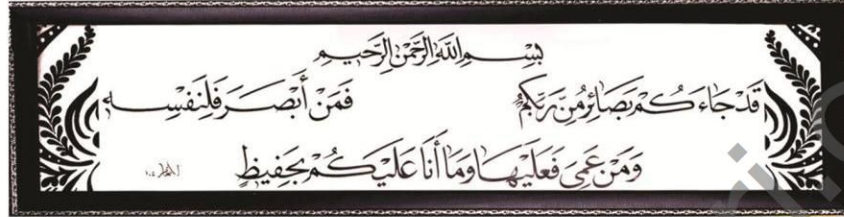 بِسْمِ اللَّهِ الرَّحْمَٰنِ الرَّحِيمِ
قَدْ جَاءَكُمْ بَصَائِرُ مِنْ رَبِّكُمْ فَمَنْ أَبْصَرَ فَلِنَفْسِهِ
وَمَنْ عَمِيَ فَعَلَيْهَا وَمَا أَنَا عَلَيْكُمْ بِحَفِيظٍ